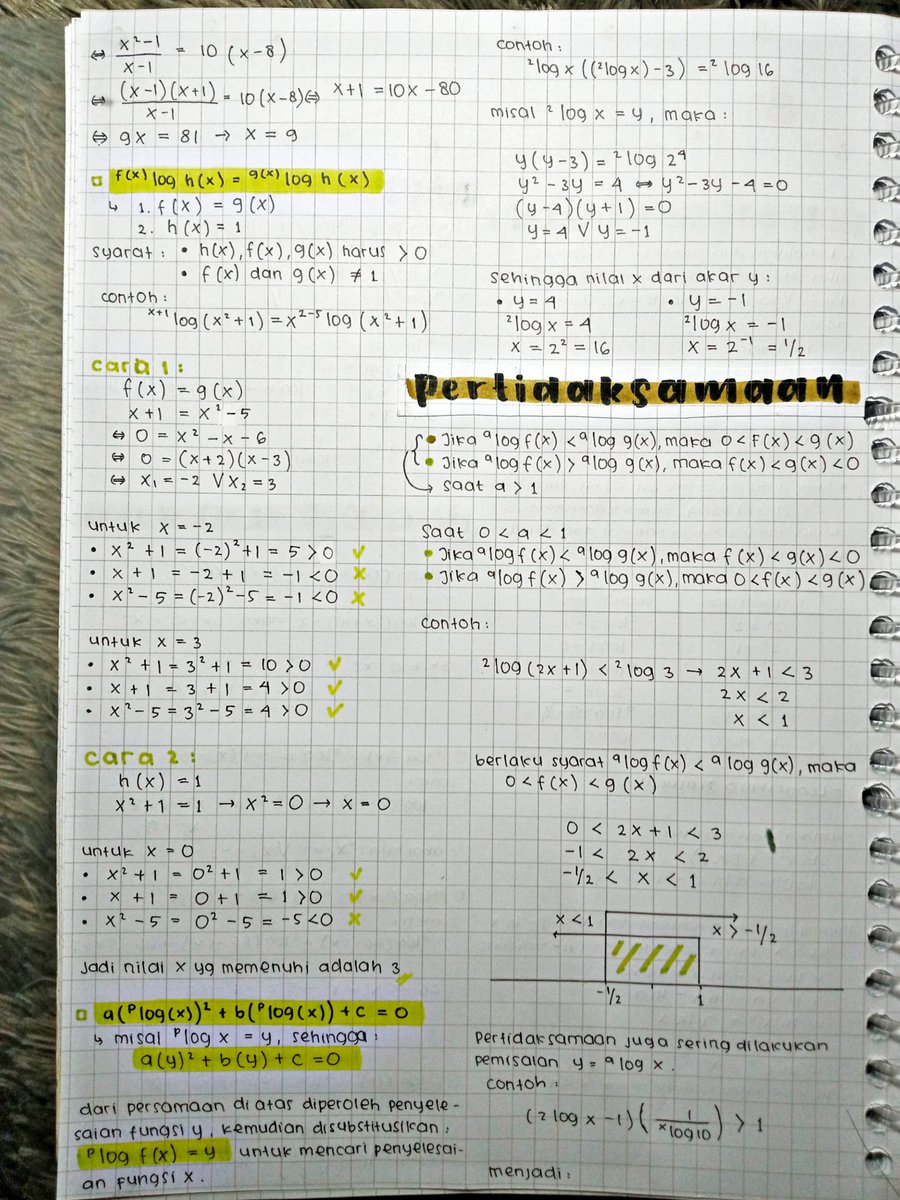 ⇔ x²-1 / x-1 = 10 (x-8)
⇔ (x-1)(x+1) / x-1 = 10(x-8) ⇔ x+1 = 10x - 80
⇔ 9x = 81 → x = 9
f(x) log h(x) = g(x) log h(x)
↳ 1. f(x) = g(x)
2. h(x) = 1
syarat : • h(x), f(x), g(x) harus > 0
• f(x) dan g(x) ≠ 1
contoh :
ˣ⁺¹log(x²+1) = x²⁻⁵ log (x²+1)
cara 1 :
f(x) = g(x)
x+1 = x² - 5
⇔ 0 = x² - x - 6
⇔ 0 = (x+2)(x-3)
⇔ x₁ = -2 V x₂ = 3
untuk x = -2
• x² + 1 = (-2)² + 1 = 5 > 0 ✓
• x + 1 = -2 + 1 = -1 < 0 ×
• x² - 5 = (-2)² - 5 = -1 < 0 ×
untuk x = 3
• x² + 1 = 3² + 1 = 10 > 0 ✓
• x + 1 = 3 + 1 = 4 > 0 ✓
• x² - 5 = 3² - 5 = 4 > 0 ✓
cara 2 :
h(x) = 1
x² + 1 = 1 → x² = 0 → x = 0
untuk x = 0
• x² + 1 = 0² + 1 = 1 > 0 ✓
• x + 1 = 0 + 1 = 1 > 0 ✓
• x² - 5 = 0² - 5 = -5 < 0 ×
jadi nilai x yg memenuhi adalah 3
a(ᵖlog(x))² + b(ᵖlog(x)) + c = 0
↳ misal ᵖlog x = y, sehingga :
a(y)² + b(y) + c = 0
dari persamaan di atas diperoleh penyele-
saian fungsi y, kemudian disubstitusikan :
ᵖlog f(x) = y untuk mencari penyelesai-
an fungsi x.
contoh :
²log x ((²log x) - 3) = ² log 16
misal ² log x = y, maka :
y(y-3) = ²log 2⁴
y² - 3y = 4 ⇔ y² - 3y - 4 = 0
(y-4)(y+1) = 0
y = 4 V y = -1
sehingga nilai x dari akar y :
• y = 4 • y = -1
²log x = 4 ²log x = -1
x = 2² = 16 x = 2⁻¹ = 1/2
pertidaksamaan
• Jika ᵃlog f(x) < ᵃlog g(x), maka 0 < f(x) < g(x)
• Jika ᵃlog f(x) > ᵃlog g(x), maka f(x) < g(x) < 0
→ saat a > 1
saat 0 < a < 1
• Jika ᵃlog f(x) < ᵃlog g(x), maka f(x) < g(x) < 0
• Jika ᵃlog f(x) > ᵃlog g(x), maka 0 < f(x) < g(x)
contoh :
²log (2x+1) < ²log 3 → 2x + 1 < 3
2x < 2
x < 1
berlaku syarat ᵃlog f(x) < ᵃlog g(x), maka
0 < f(x) < g(x)
0 < 2x + 1 < 3
-1 < 2x < 2
-1/2 < x < 1
x < 1
x > -1/2
-1/2 1
pertidaksamaan juga sering dilakukan
pemisalan y = ᵃ log x.
contoh :
(2 log x - 1) (1 / ˣlog 10) > 1
menjadi :